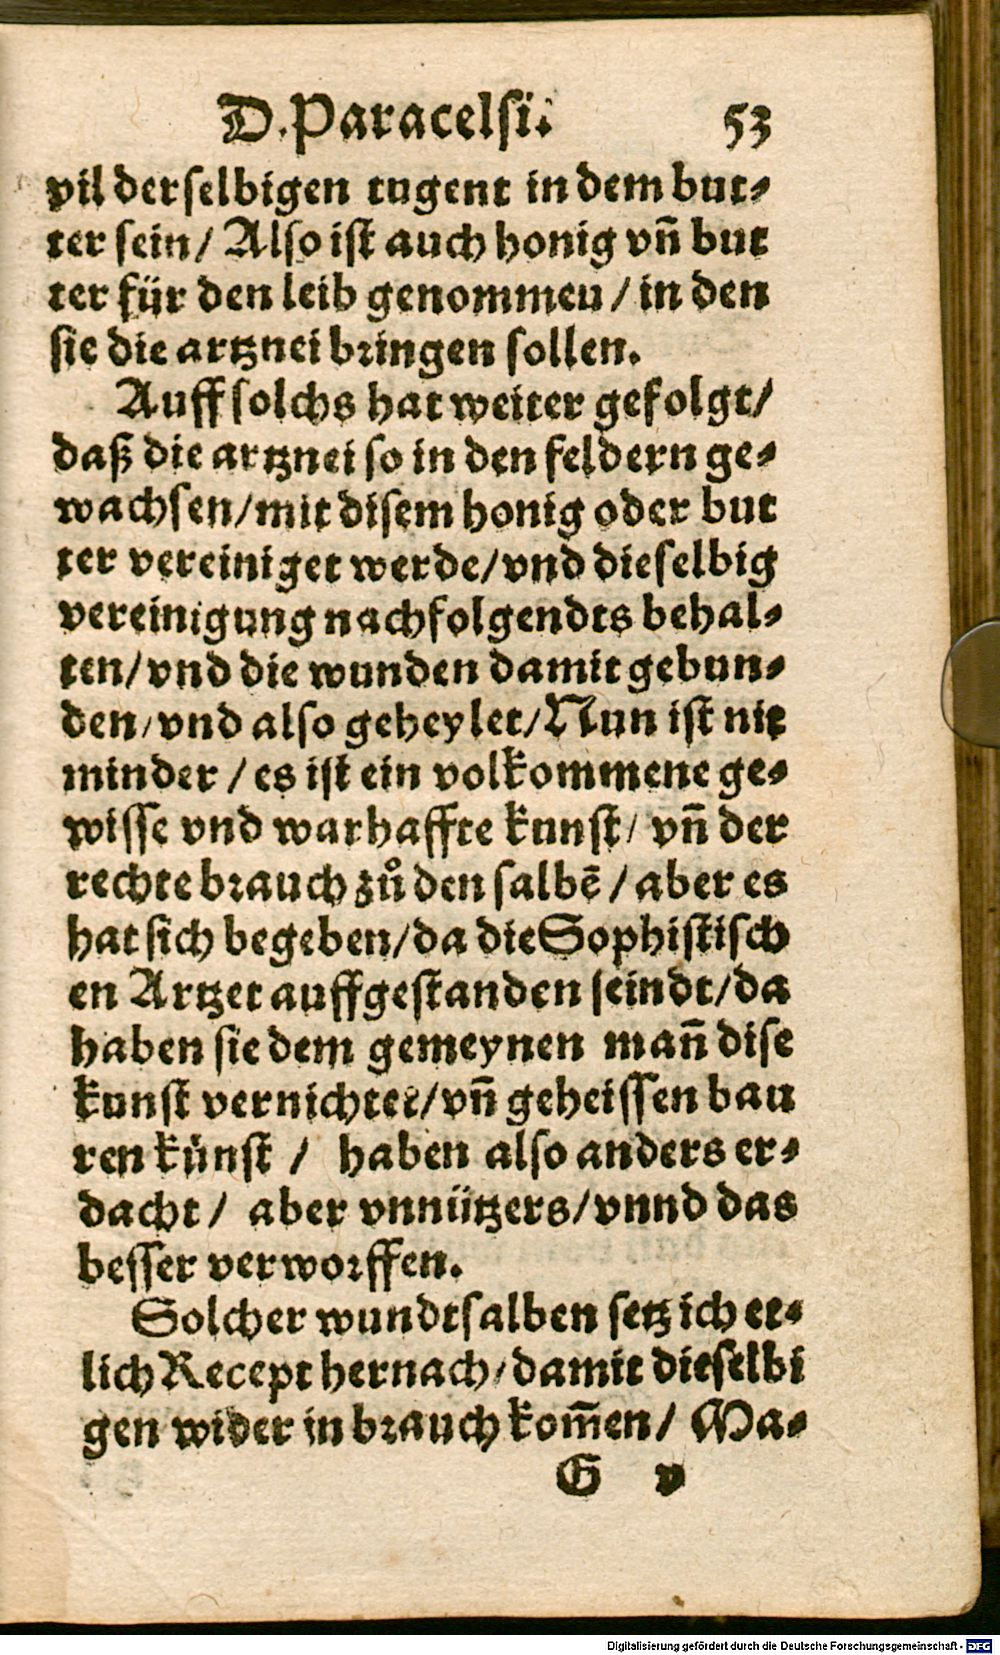 D. Paracelsi. 53
vil derselbigen tugent in dem but⸗
ter sein / Also ist auch honig vn̄ but
ter für den leib genommeu / in den
sie die artznei bringen sollen.
Auff solchs hat weiter gefolgt /
daß die artznei so in den feldern ge⸗
wachsen / mit disem honig oder but
ter vereiniget werde / vnd dieselbig
vereinigung nachfolgendts behal⸗
ten / vnd die wunden damit gebun⸗
den / vnd also geheylet / Nun ist nit
minder / es ist ein volkommene ge⸗
wisse vnd warhaffte kunst / vn̄ der
rechte brauch zů den salbē / aber es
hat sich begeben / da die Sophistisch
en Artzet auffgestanden seindt / da
haben sie dem gemeynen man̄ dise
kunst vernichtet / vn̄ geheissen bau
ren künst / haben also anders er⸗
dacht / aber vnnützers / vnnd das
besser verworffen.
Solcher wundtsalben setz ich et⸗
lich Recept hernach / damit dieselbi
gen wider in brauch kom̄en / Ma⸗
G v
Digitalisierung gefördert durch die Deutsche Forschungsgemeinschaft - DFG